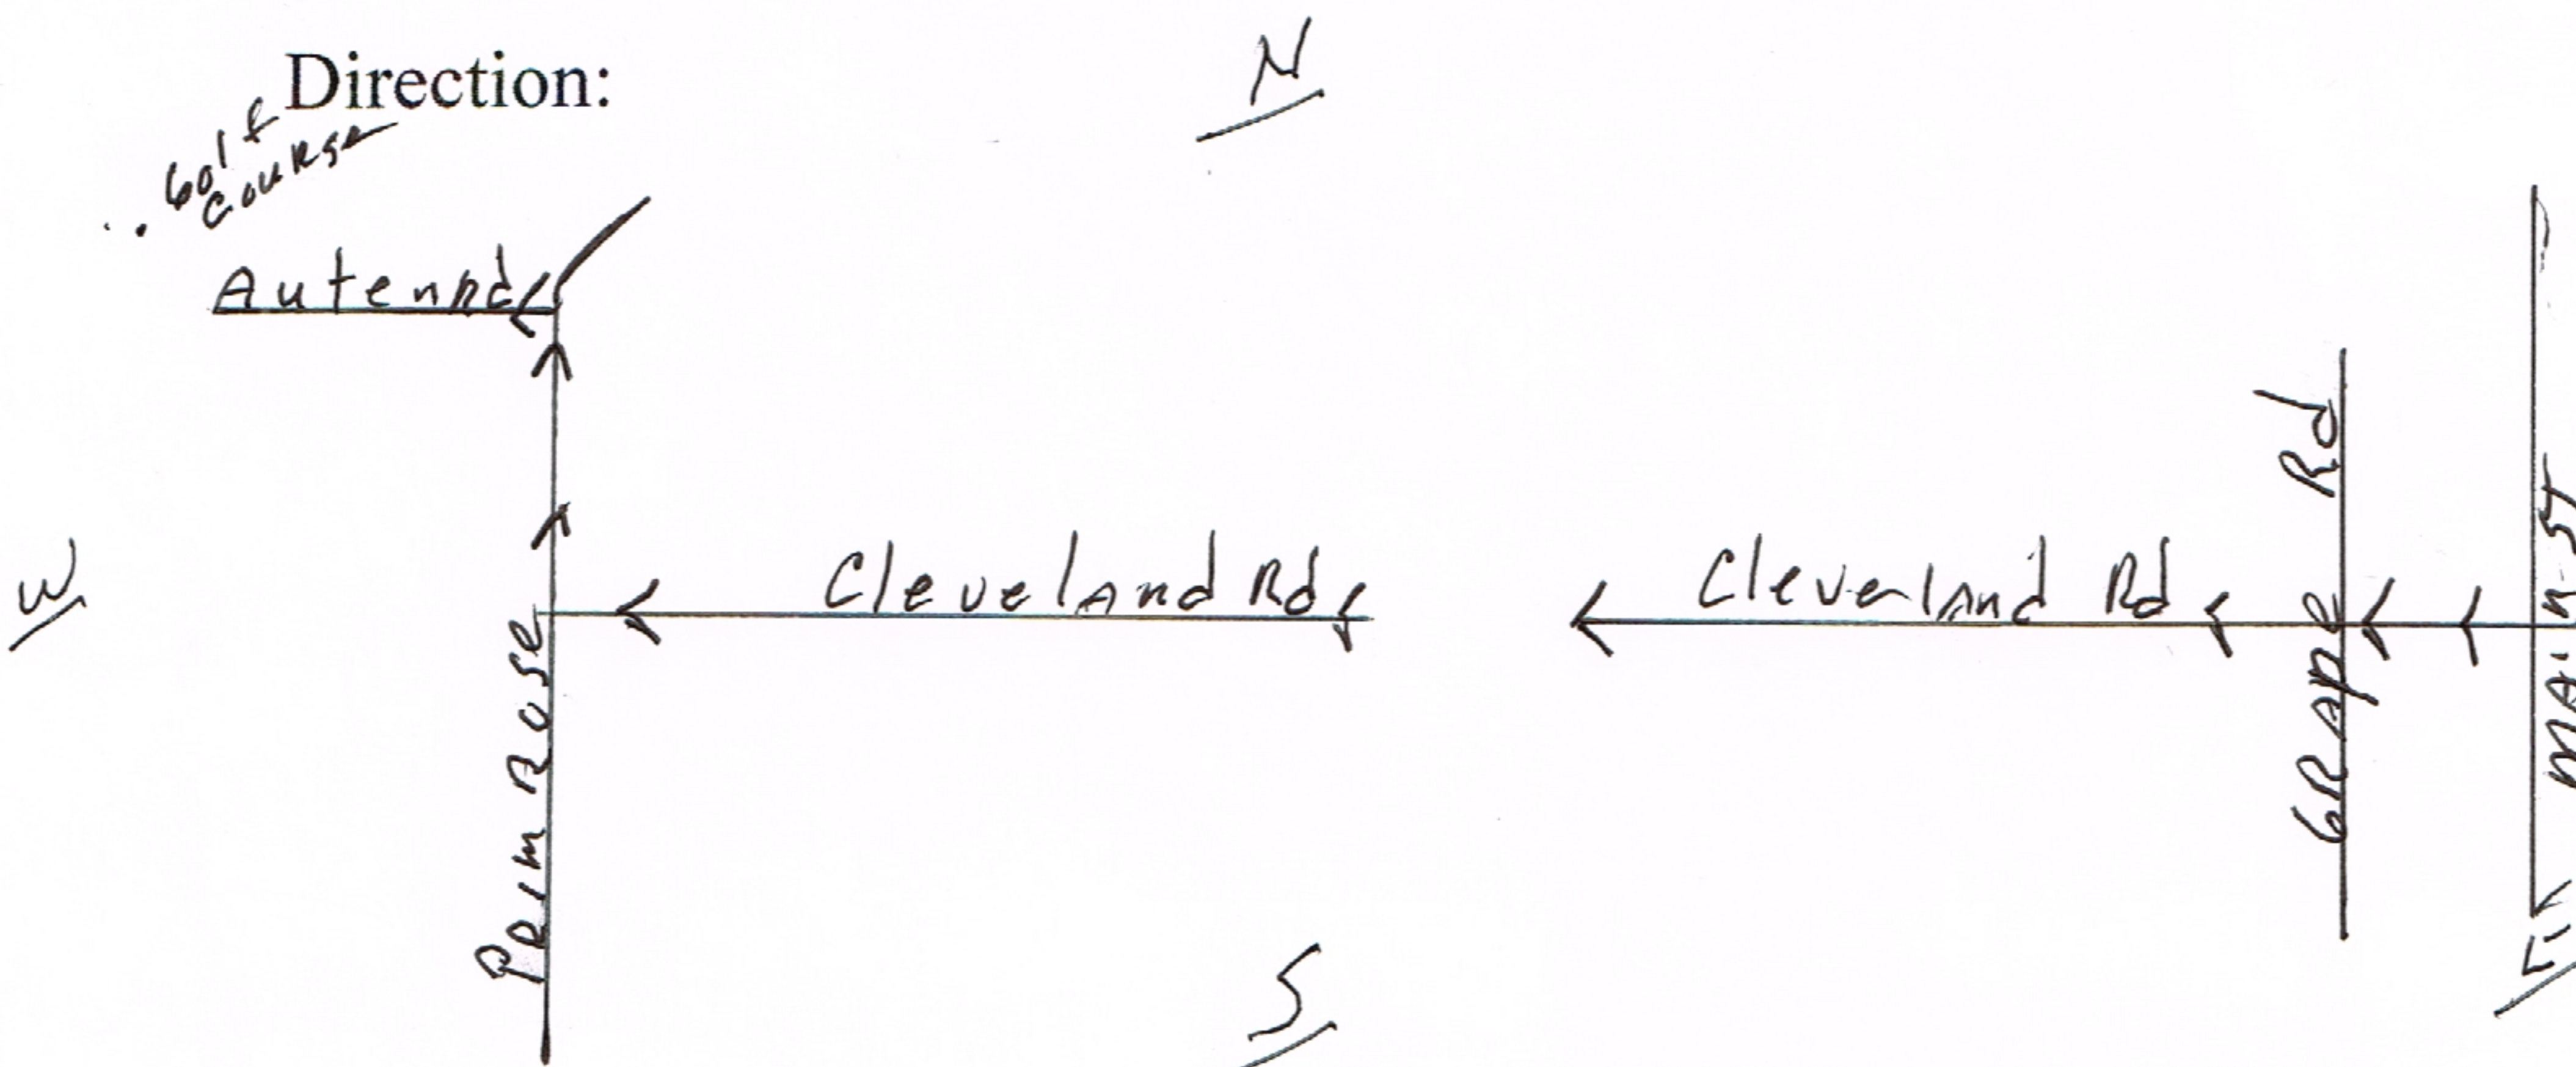 Direction:
N
Golf
Course
Auten Rd
W
Cleveland Rd
Cleveland Rd
Grape Rd
Main St
Primrose
S
E